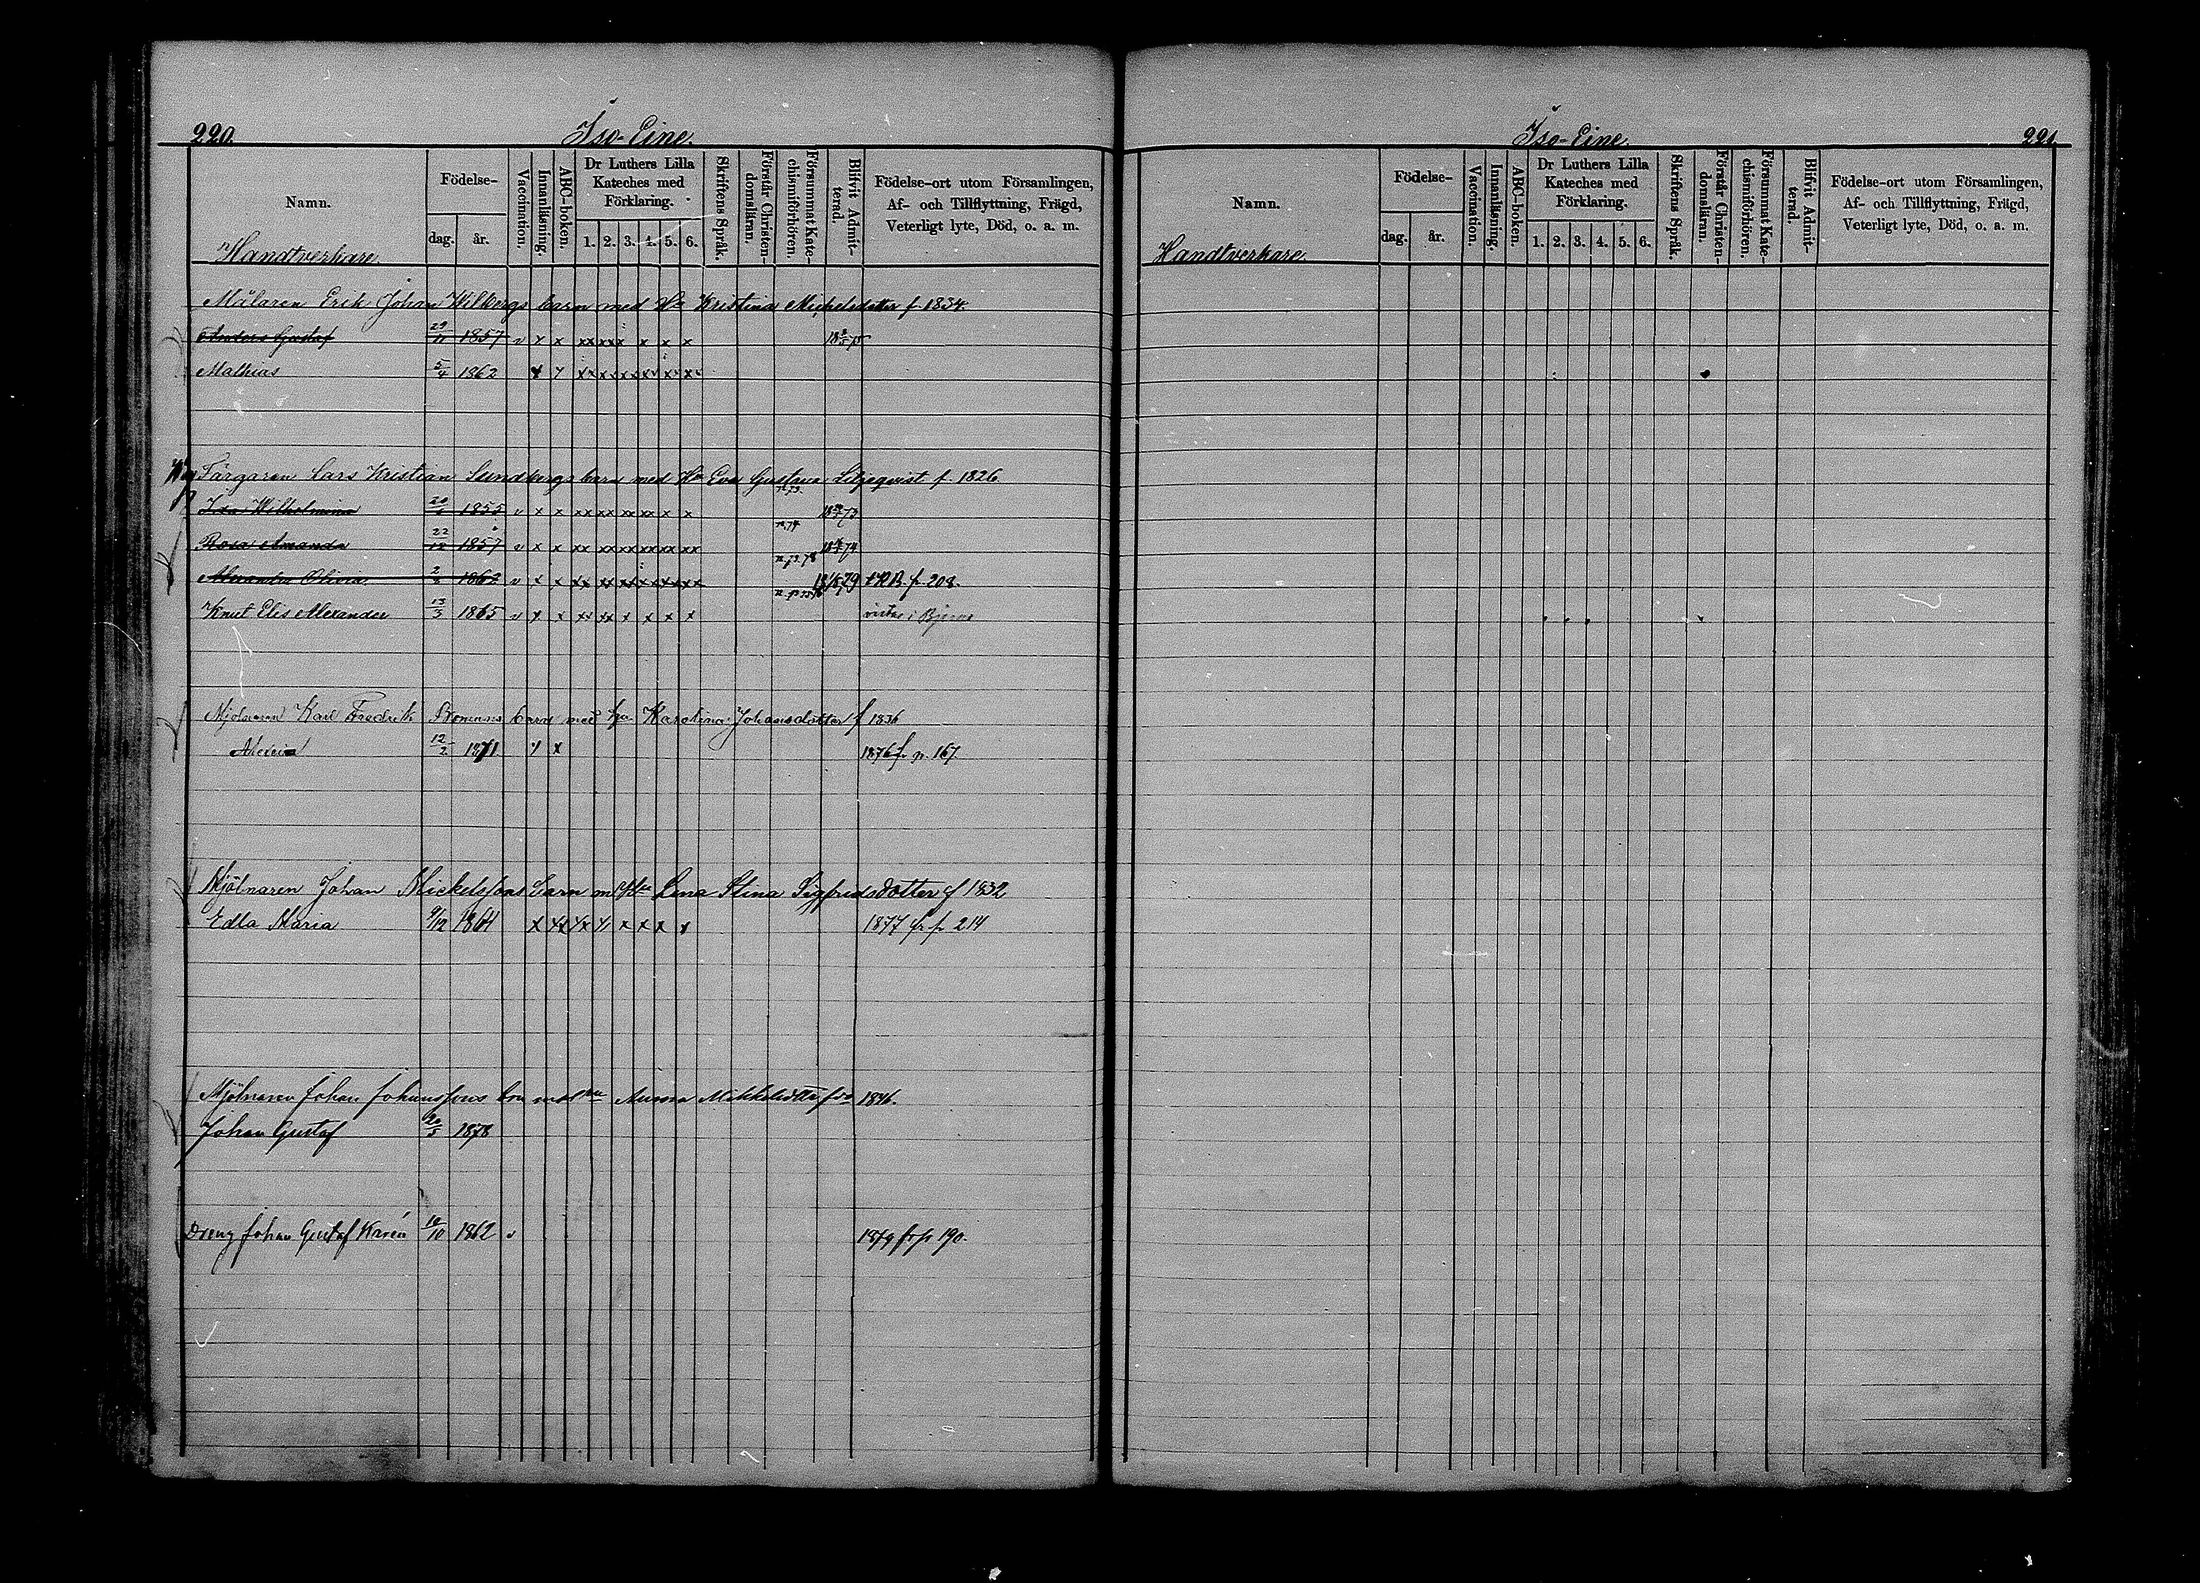 220. Iso-Eine.
Namn. Födelse- dag. år. Vaccination. Innanläsning. ABC-boken. Dr Luthers Lilla Kateches med Förklaring. 1. 2. 3. 4. 5. 6. Skriftens Språk. Förstår Christendomsläran. Försummat Katechismiförhören. Blifvit Admitterad. Födelse-ort utom Församlingen, Af- och Tillflyttning, Frägd, Veterligt lyte, Död, o. a. m.
Handtverkare.
Målaren Erik Johan Wilbergs barn med Hu Kristina Michelsdotter f. 1834.
Anders Gustaf 29/11 1857 v x x xx xx x x x x
Mathias 5/4 1862 x x xx xx xx xx xx xx
Färgaren Lars Kristian Sundbergs barn med Hu Eva Gustava Liljeqvist f. 1826
Ida Wilhelmina 1855 v x x xx xx xx xx x x
Rosa Amanda 22/12 1857 v x x xx xx xx xx xx xx
Alexandra Olivia 1862 v x x xx xx xx xx xx xx p. 208.
Knut Elis Alexander 13/3 1865 v x x xx xx x x x x
Mjölnaren Karl Fredrik barn med hu Karolina Johansdotter f 1836
12/2 1871 x x 1876 fr. p. 167.
Mjölnaren Johan Mickelssons barn med Hu Lena Stina Sigfridsdotter f 1832
Edla Maria 9/12 1864 x x x x x x x x 1877 fr p 214
Mjölnaren Johan Johanssons barn med hu Anna 1846.
Johan Gustaf 20/5 1878
Dreng Johan Gustaf 10/10 1862 v 1879 fr p 190.
Iso-Eine. 221.
Namn. Födelse- dag. år. Vaccination. Innanläsning. ABC-boken. Dr Luthers Lilla Kateches med Förklaring. 1. 2. 3. 4. 5. 6. Skriftens Språk. Förstår Christendomsläran. Försummat Katechismiförhören. Blifvit Admitterad. Födelse-ort utom Församlingen, Af- och Tillflyttning, Frägd, Veterligt lyte, Död, o. a. m.
Handtverkare.